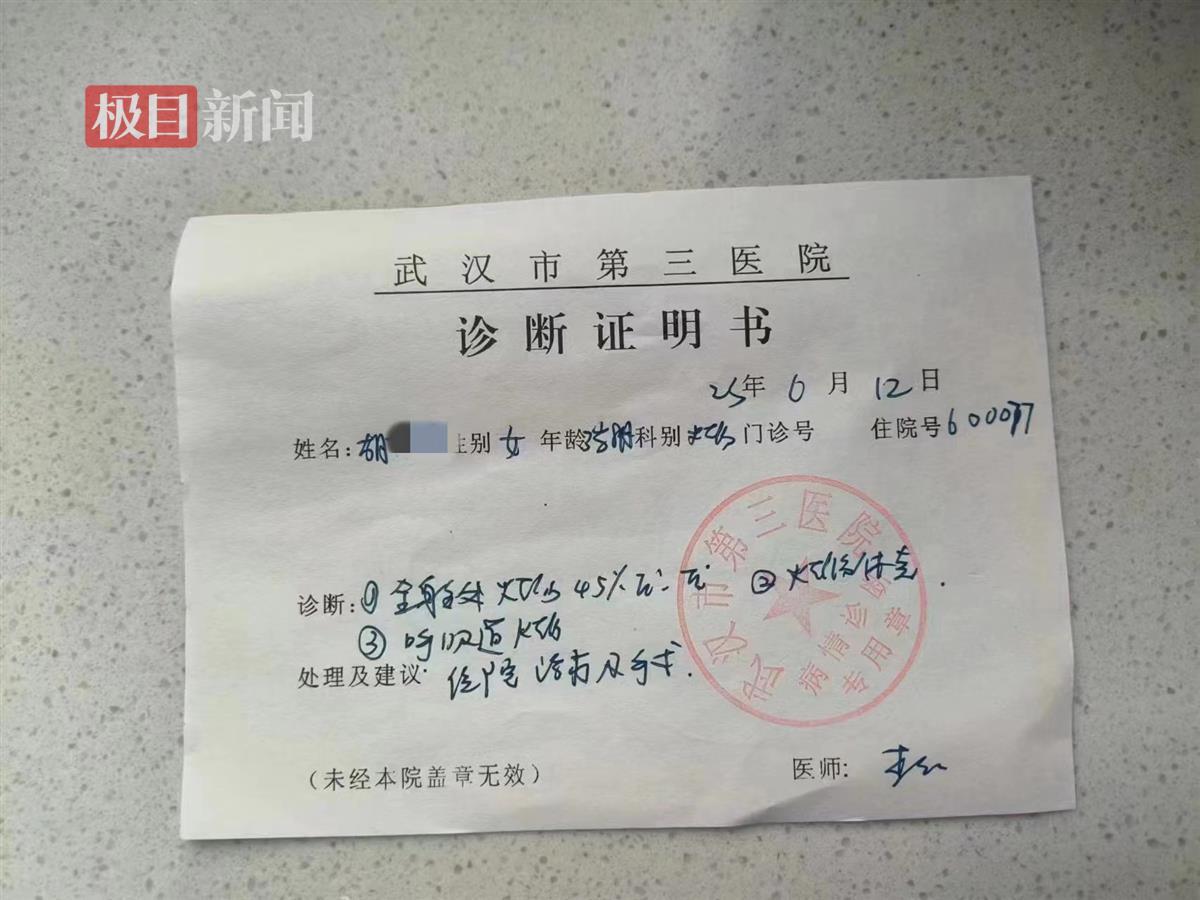 极目新闻
武汉市第三医院
诊断证明书
25年6月12日
姓名:胡 性别 女 年龄 科别 烧伤 门诊号 住院号
诊断:① 全身多处烧伤45%Ⅱ°-Ⅲ° ② 烧伤休克.
③ 呼吸道烧伤
处理及建议: 住院治疗及手术.
(未经本院盖章无效) 医师:
武汉市第三医院
病情诊断
专用章